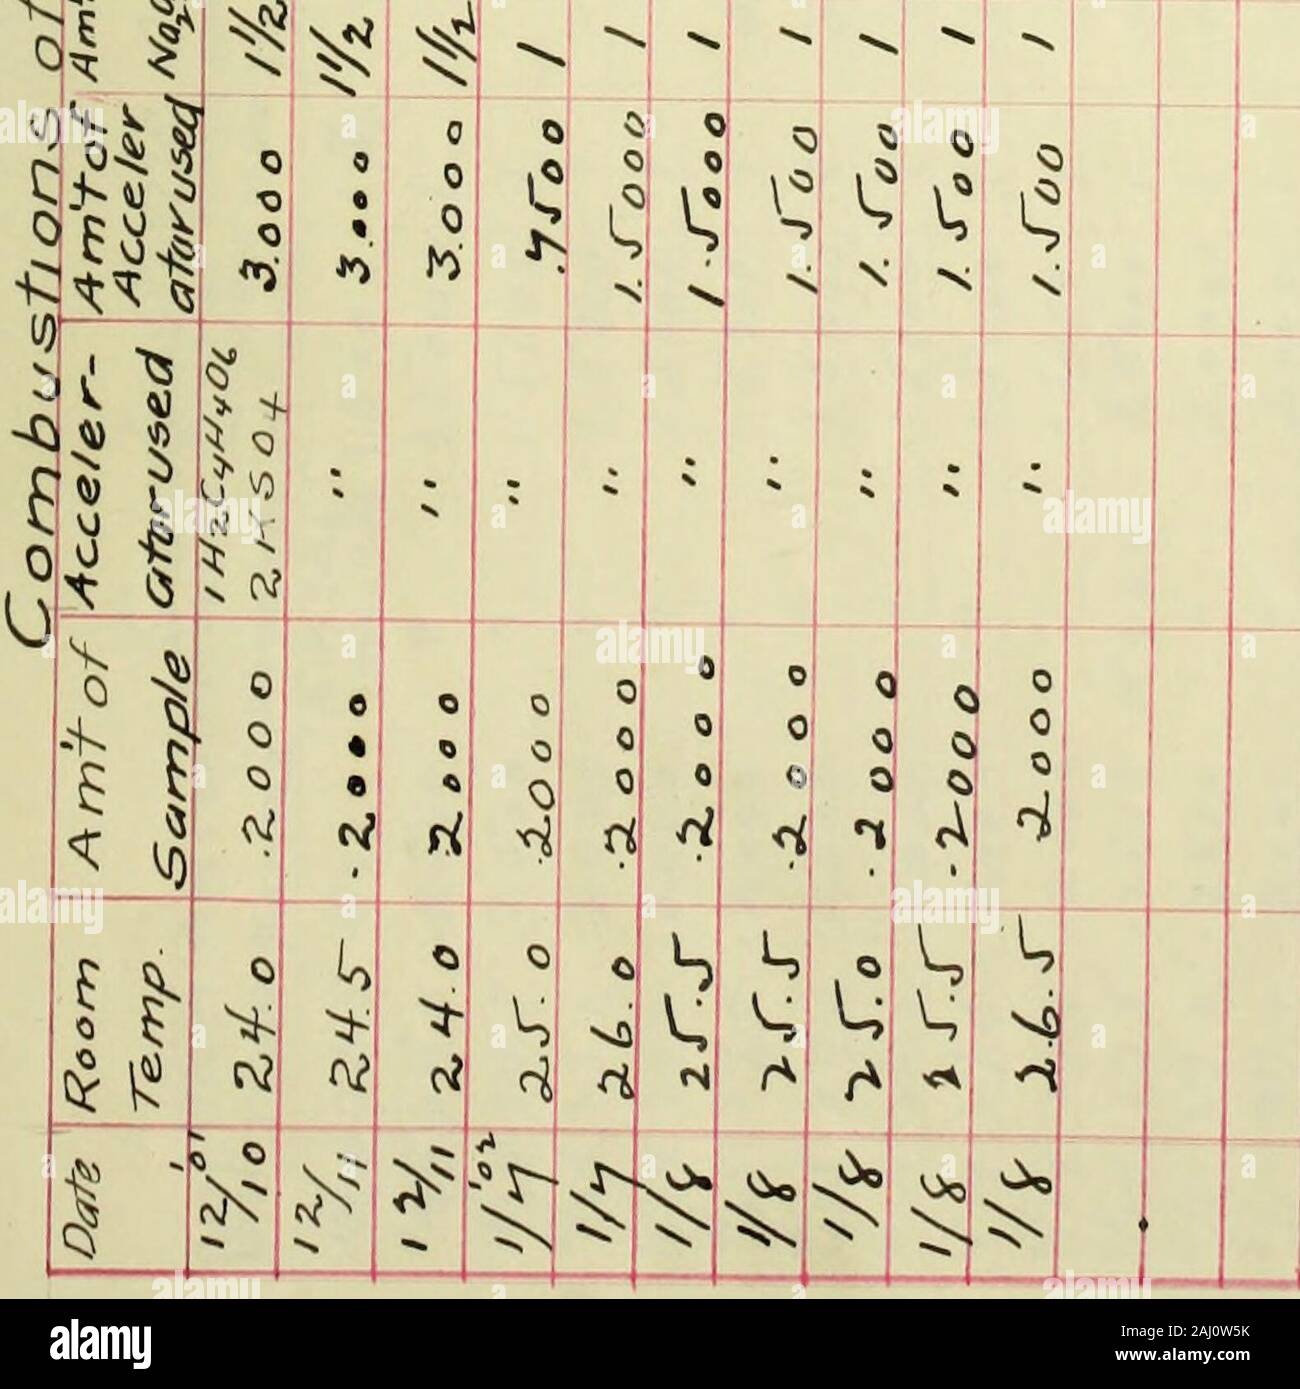 Combustions of
Date Room Temp. Am't of Sample Acceler-ator used Am't of Accelerator used Amt Na2
12/10 '01 24.0 .2000 1 H2C4H4O6 2 KSO4 3.000 1 1/2
12/11 24.5 .2000 " 3.000 1 1/2
12/11 24.0 .2000 " 3.000 1 1/2
1/7 '02 25.0 .2000 " .7500 1
1/7 26.0 .2000 " 1.5000 1
1/8 25.5 .2000 " 1.5000 1
1/8 25.5 .2000 " 1.500 1
1/8 25.0 .2000 " 1.500 1
1/8 25.5 .2000 " 1.500 1
1/8 26.5 2000 " 1.500 1
alamy
Image ID: 2AJ0W5K
www.alamy.com